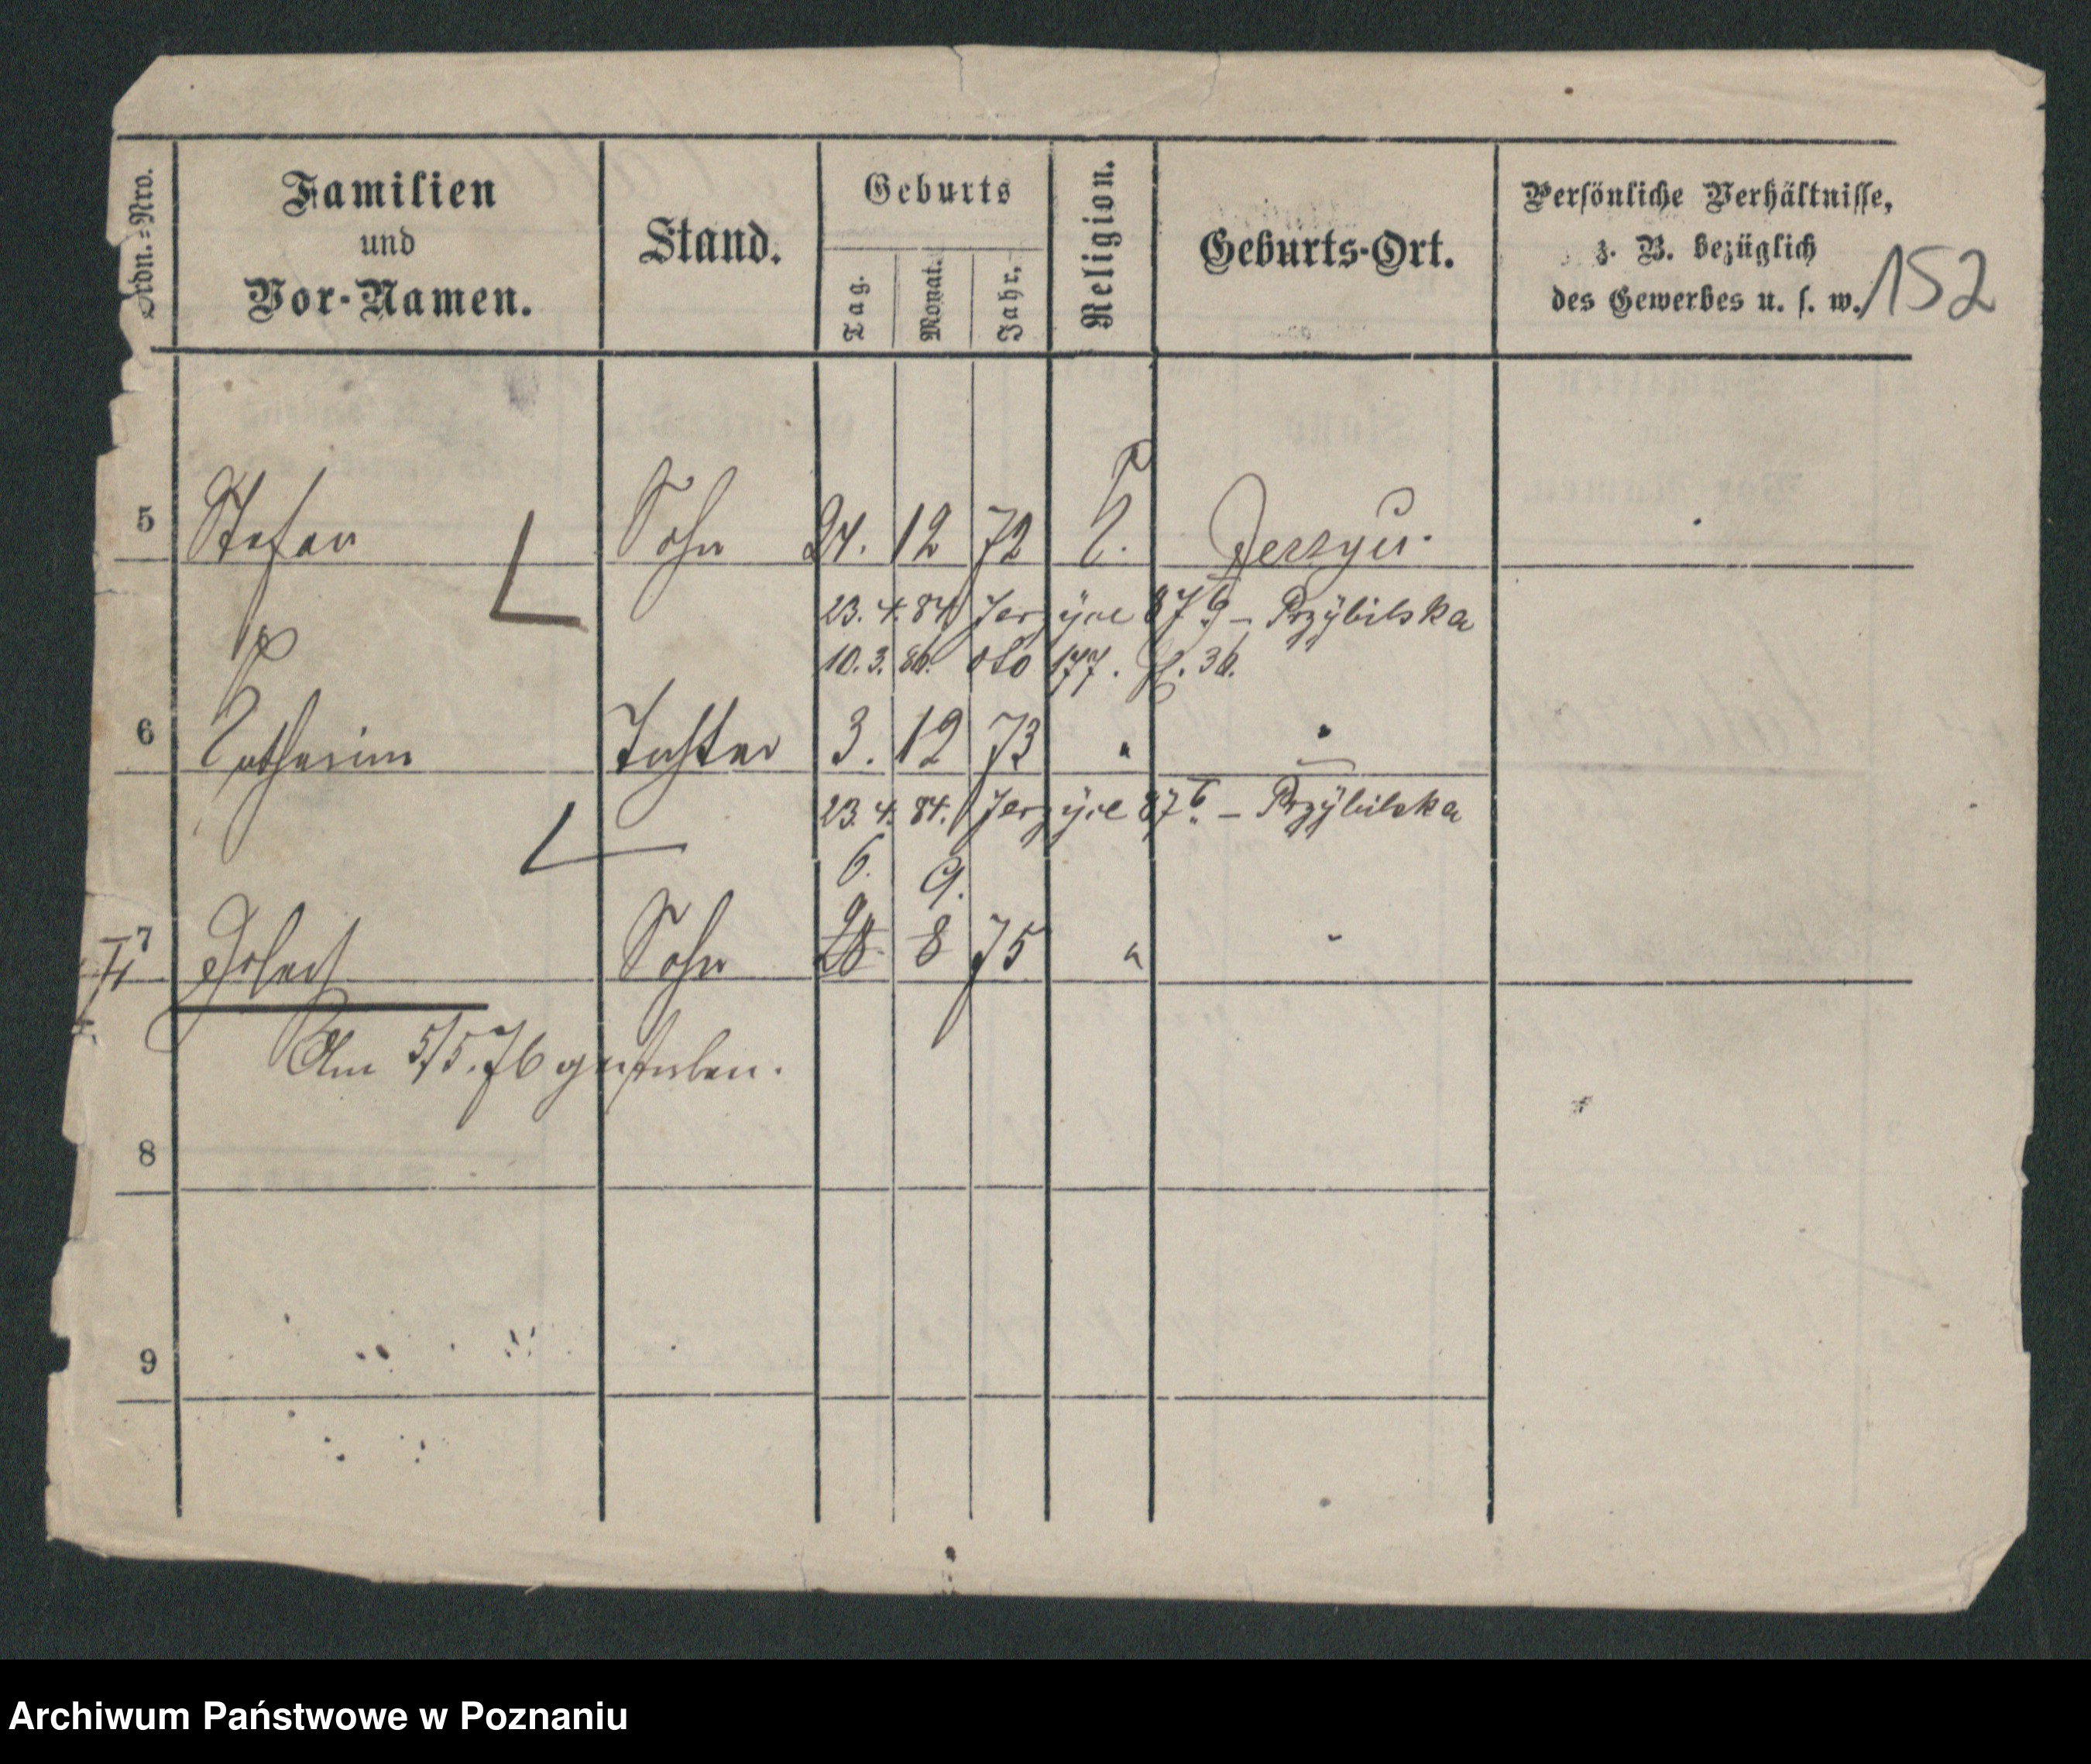 152
Ordn.=Nro.
Familien
und
Vor-Namen.
Stand.
Geburts
Tag.
Monat.
Jahr.
Religion.
Geburts-Ort.
Persönliche Verhältnisse,
z. B. bezüglich
des Gewerbes u. s. w.
5 Stefan Sohn 24. 12 72
23. 4. 84 Jerzyce 87 – Przybilska
10. 3. 86. 177. 36.
6 Catharina Tochter 3. 12 73 "
23. 4. 84. Jerzyce 87 – Przybilska
6. 9.
7 Sohn 28 8 75 "
Am 5/5. 76 gestorben.
8
9
Archiwum Państwowe w Poznaniu